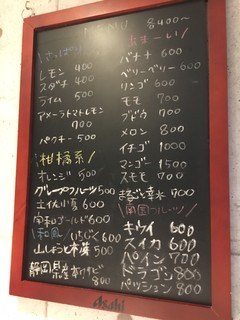 MENU 各400〜
さっぱり
レモン 400
スダチ 400
ライム 500
アメーラトマトレモン
700
パクチー 500
柑橘系
オレンジ 500
グレープフルーツ 500
小夏 600
ゴールド 600
和風
いちじく 600
山しょうと 500
静岡県産 800
あまーい
バナナ 600
ベリーベリー 600
リンゴ 600
モモ 700
ブドウ 700
メロン 800
イチゴ 1000
マンゴー 1500
スモモ 700
まるごと 900
南国フルーツ
キウイ 600
スイカ 600
パイン 700
ドラゴン 800
パッション 800
Asahi